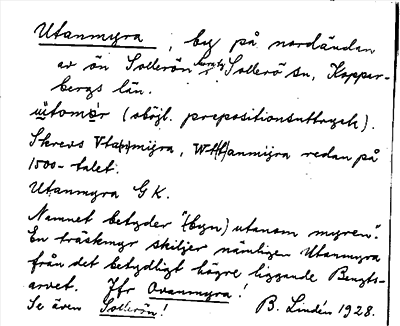 Utanmyra, by på nordändan
av ön Sollerön, Sollerö sn, Kopper-
bergs län.
(oböjl. prepositionsuttryck).
Skrevs redan på
1500-talet.
Utanmyra GK.
Namnet betyder "(byn) utanom myren".
En träskmyr skiljer nämligen Utanmyra
från det betydligt högre liggande Bengts-
arvet. Jfr Ovanmyra!
Se även Sollerön! B. Lindén 1928.